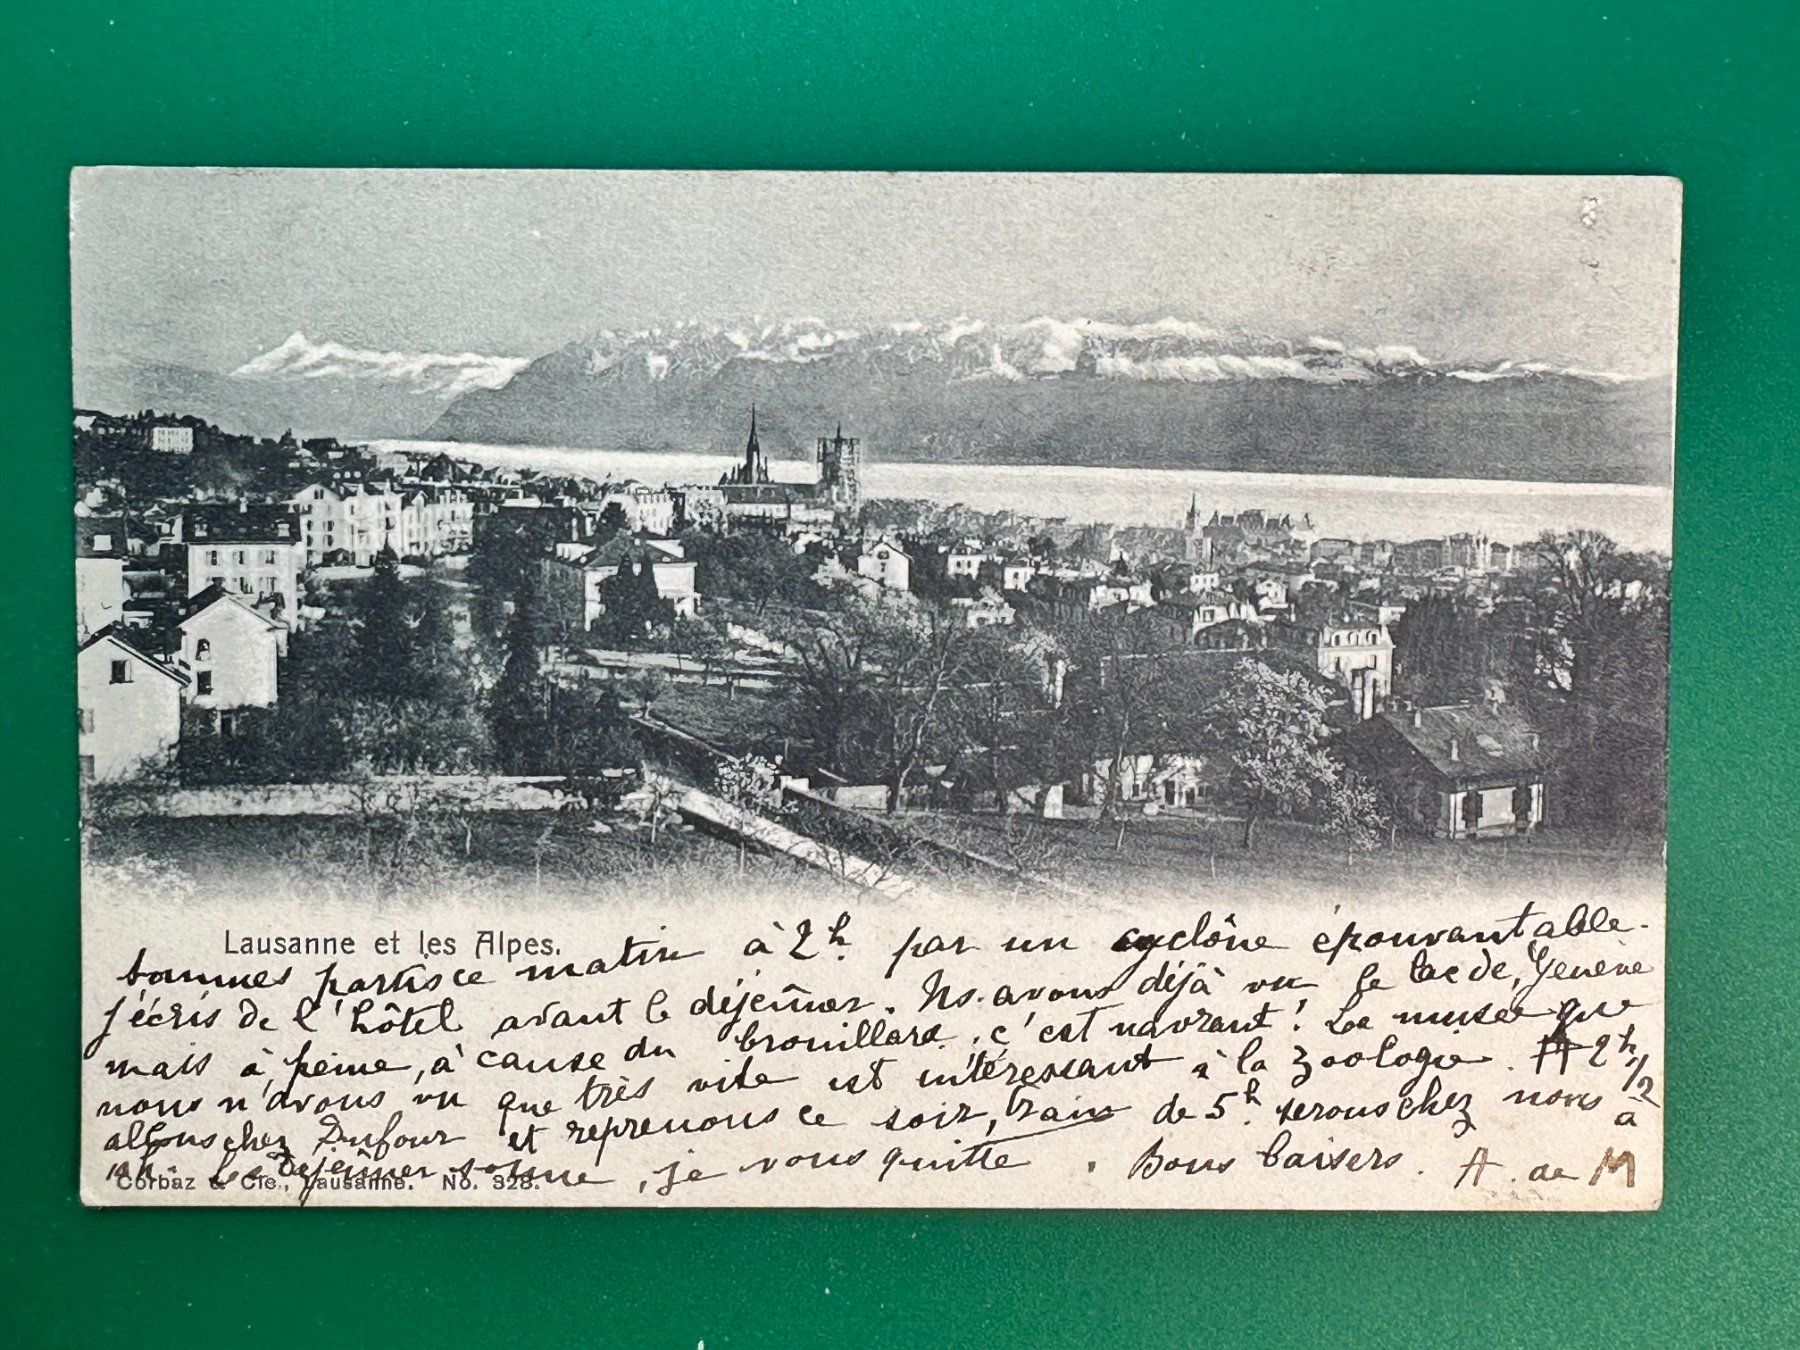 Lausanne et les Alpes.
Sommes partis ce matin à 2h. par un cyclône épouvantable.
J'écris de l'hôtel avant le déjeûner. Ns. avons déjà vu le lac de Genève
mais à peine, à cause du brouillard. c'est navrant! Le musée que
nous n'avons vu que très vite est intéressant à la zoologie. A 2h 1/2
allons chez Dufour et reprenons ce soir, train de 5h. serons chez nous à
le déjeûner sonne, je vous quitte. Bons baisers. A. de M
Corbaz & Cie., Lausanne. No. 328.